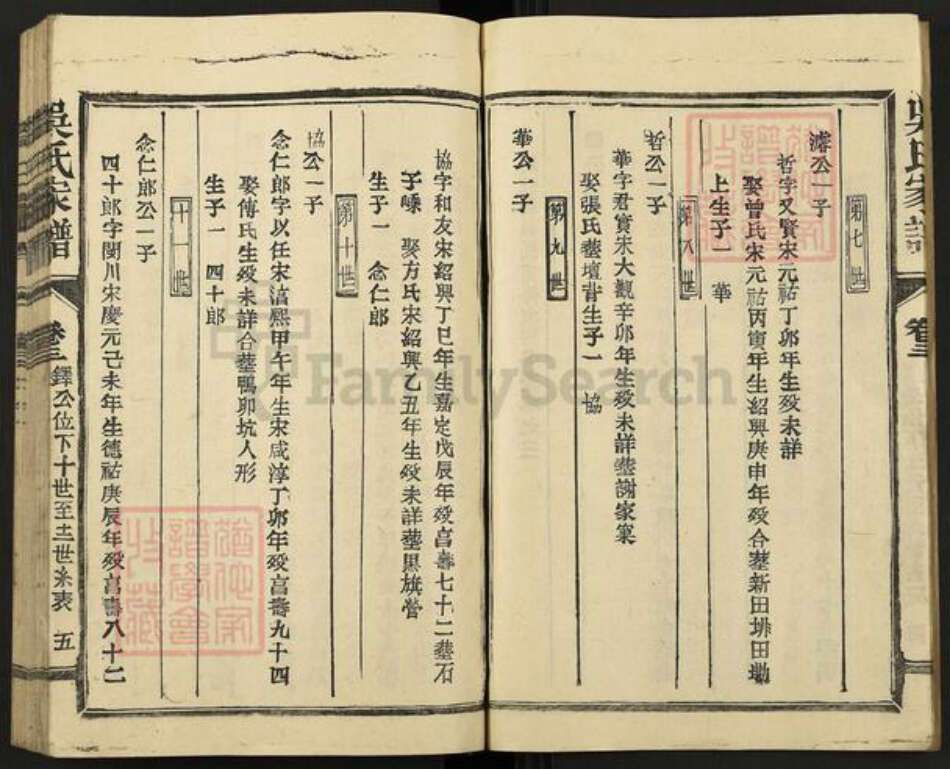 吳氏家譜
卷三
第七世
濬公一子
哲字又賢宋元祐丁卯年生殁未詳
娶曾氏宋元祐丙寅年生紹興庚申年殁合塟新田排田墈
上生子一 華
第八世
哲公一子
華字君實宋大觀辛卯年生殁未詳塟謝家窠
娶張氏塟壇背生子一 協
第九世
華公一子
協字和友宋紹興丁巳年生嘉定戊辰年殁亯壽七十二塟石
子嵊 娶方氏宋紹興乙丑年生殁未詳塟黒旗營
生子一 念仁郎
第十世
協公一子
念仁郎字以任宋湻熙甲午年生宋咸淳丁卯年殁亯壽九十四
娶傅氏生殁未詳合塟鴨卯坑人形
生子一 四十郎
十一世
念仁郎公一子
四十郎字閩川宋慶元己未年生德祐庚辰年殁亯壽八十二
吳氏家譜
卷三
鐸公位下十世至十一世系表
五
FamilySearch